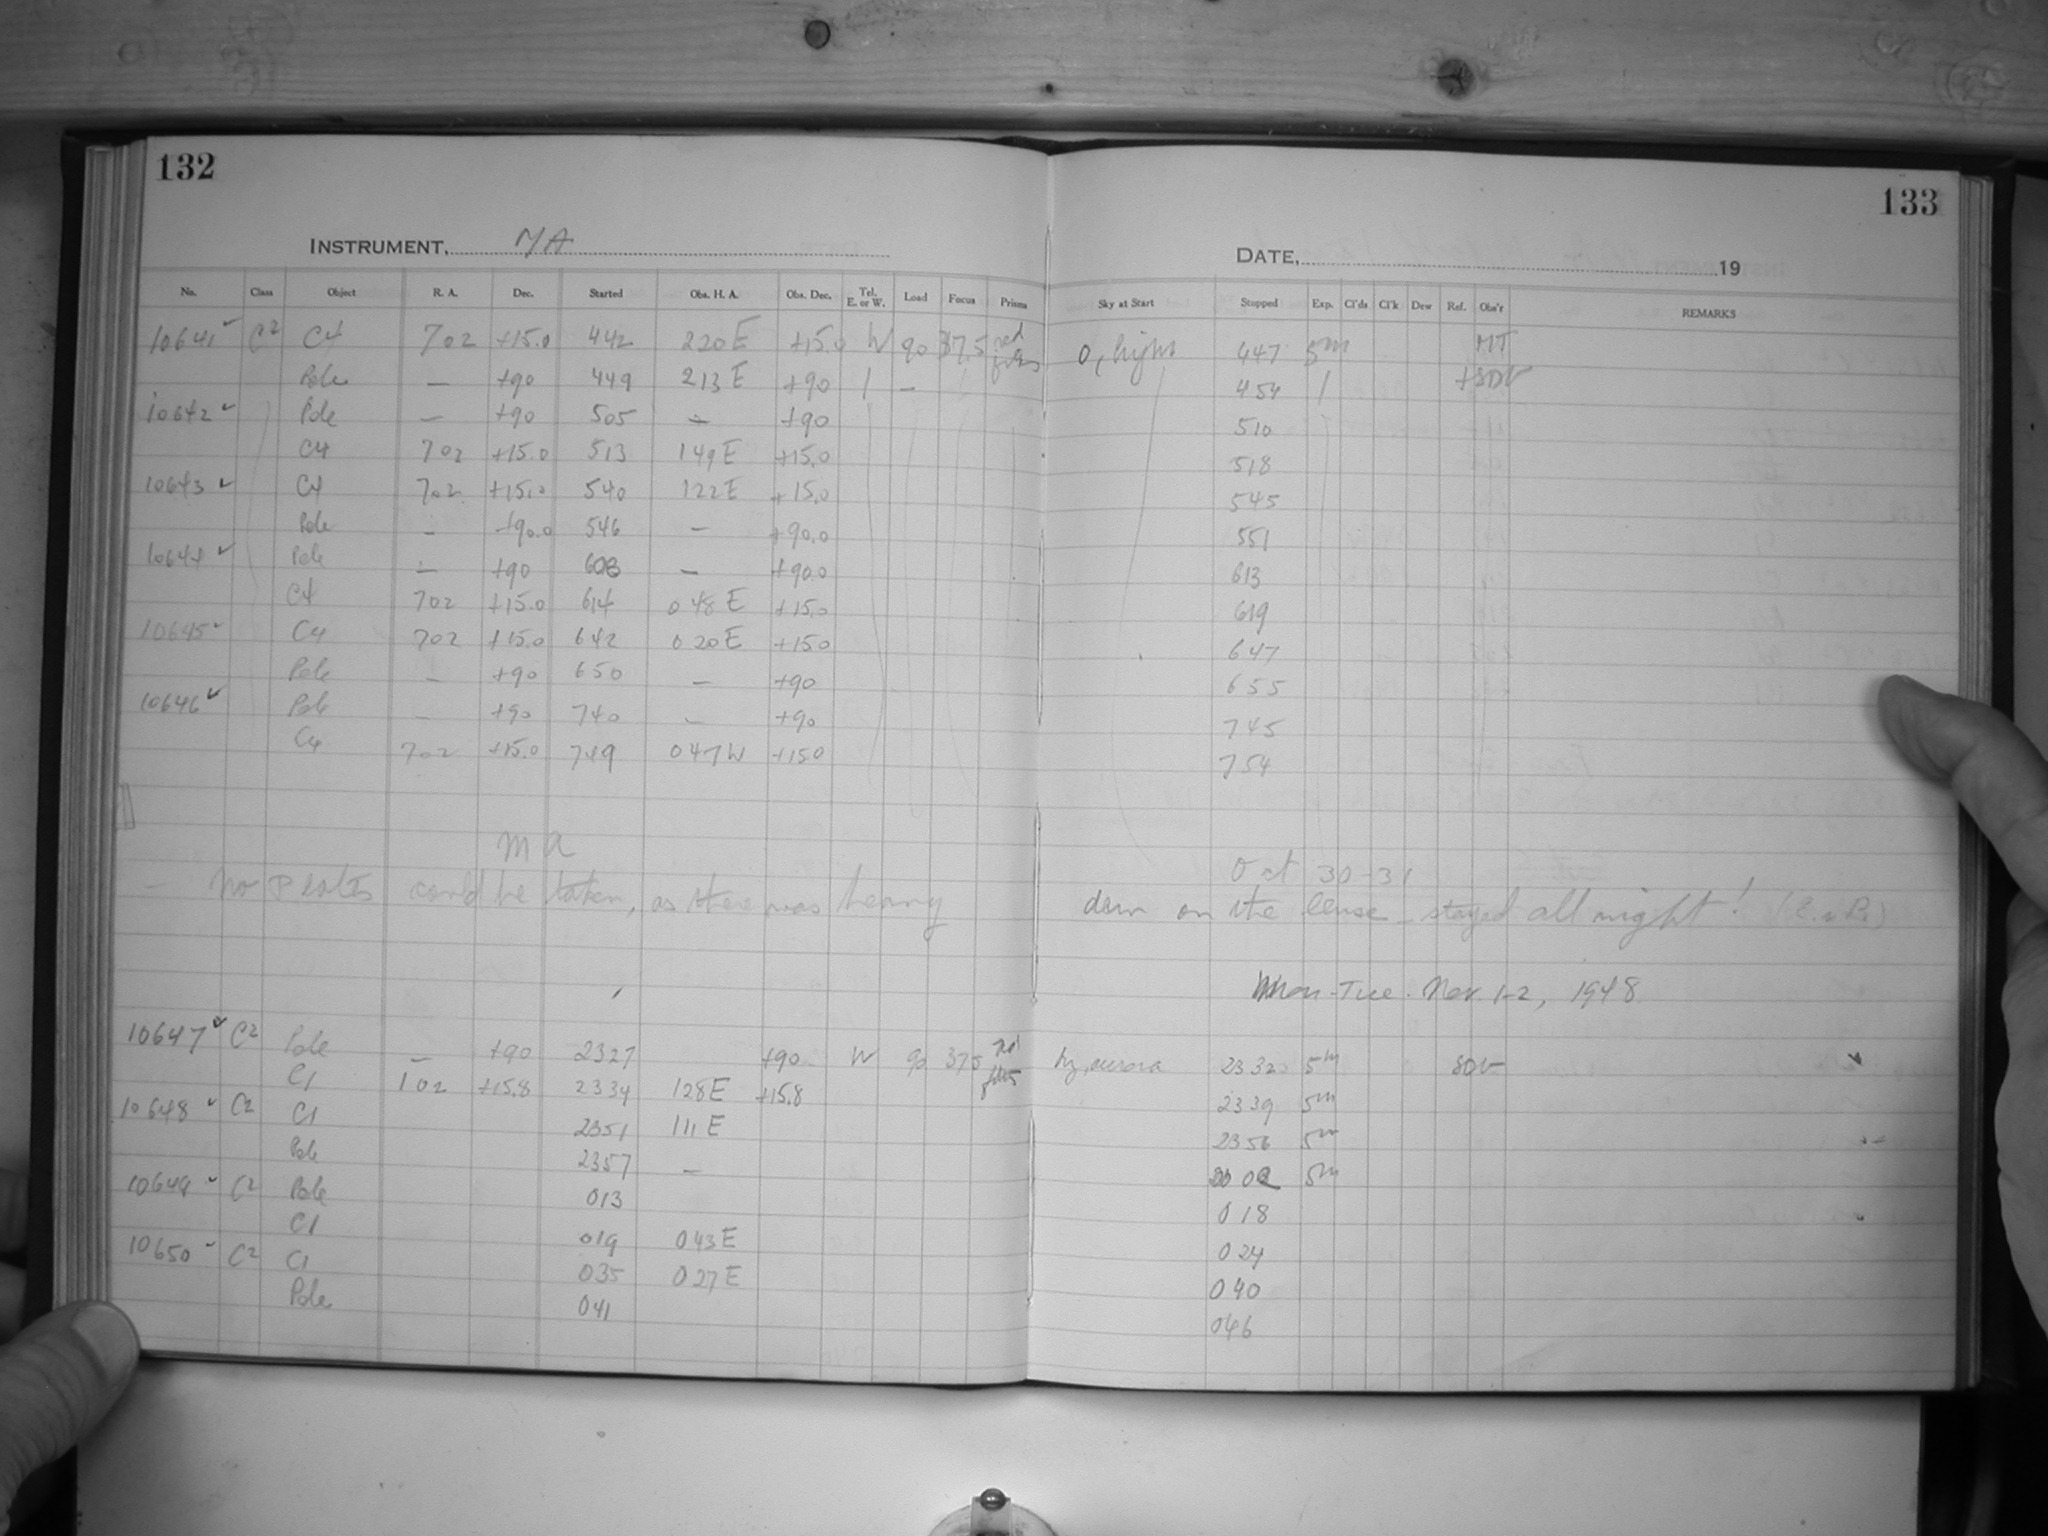 132
133
INSTRUMENT, MA
DATE, 19
No. Class Object R. A. Dec. Started Obs. H. A. Obs. Dec. Tel. E. or W. Load Focus Prisms Sky at Start Stopped Exp. Cl'ds Cl'k Dew Ref. Obs'r REMARKS
10641 C2 C4 702 +15.0 442 220 E +15.0 W 90 37.5 red 0, 447 5m MT
Pole — +90 449 213 E +90 — 454 +SDV
10642 Pole — +90 505 — +90 510
C4 702 +15.0 513 149 E +15.0 518
10643 C4 702 +15.0 540 122 E +15.0 545
Pole - +90.0 546 — +90.0 551
10644 Pole — +90 608 — +90.0 613
C4 702 +15.0 614 048 E +15.0 619
10645 C4 702 +15.0 642 020 E +150 647
Pole - +90 650 — +90 655
10646 Pole - +90 740 — +90 745
C4 702 +15.0 749 047 W +150 754
MA Oct 30-31
— No Plates could be taken, as there was heavy dew on the lense - stayed all night!
Mon-Tue. Nov 1-2, 1948
10647 C2 Pole — +90 2327 +90 W 90 375 red hz, aurora 2332 5m SDV
C1 102 +15.8 2334 128 E +15.8 2339 5m
10648 C2 C1 2351 111 E 2356 5m
Pole 2357 — 002 5m
10649 C2 Pole 013 018
C1 019 043 E 024
10650 C2 C1 035 027 E 040
Pole 041 046